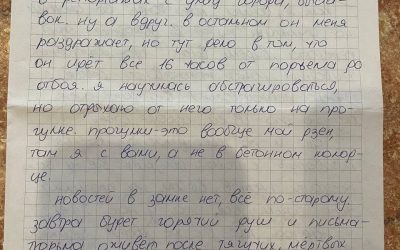 вок. ну а вдруг. в остальном он меня
раздражает, но тут дело в том, что
он идёт все 16 часов от подъема до
отбоя. я научилась абстрагироваться,
но отдыхаю от него только на про-
гулке. прогулки-это вообще мой дзен,
там я с вами, а не в бетонном колод-
це.
новостей в замке нет, всё по-старому.
завтра будет горячий душ и письма-
тюрьма оживёт после тягучих, мёртвых